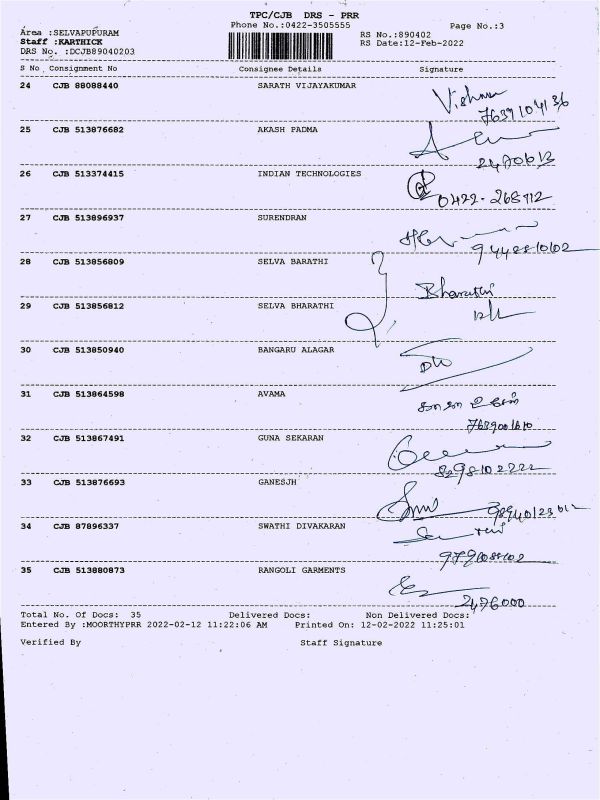 TPC/CJB DRS - PRR
Phone No.:0422-3505555
Page No.:3
Area :SELVAPUPURAM
RS No.:890402
Staff :KARTHICK
RS Date:12-Feb-2022
DRS No. :DCJB89040203
S No Consignment No Consignee Details Signature
24 CJB 88088440 SARATH VIJAYAKUMAR
7639104136
25 CJB 513876682 AKASH PADMA
26 CJB 513374415 INDIAN TECHNOLOGIES
27 CJB 513896937 SURENDRAN
28 CJB 513856809 SELVA BARATHI
Bharathi
29 CJB 513856812 SELVA BHARATHI
30 CJB 513850940 BANGARU ALAGAR
31 CJB 513864598 AVAMA
32 CJB 513867491 GUNA SEKARAN
8298102222
33 CJB 513876693 GANESJH
34 CJB 87896337 SWATHI DIVAKARAN
35 CJB 513880873 RANGOLI GARMENTS
2476000
Total No. Of Docs: 35 Delivered Docs: Non Delivered Docs:
Entered By :MOORTHYPRR 2022-02-12 11:22:06 AM Printed On: 12-02-2022 11:25:01
Verified By Staff Signature